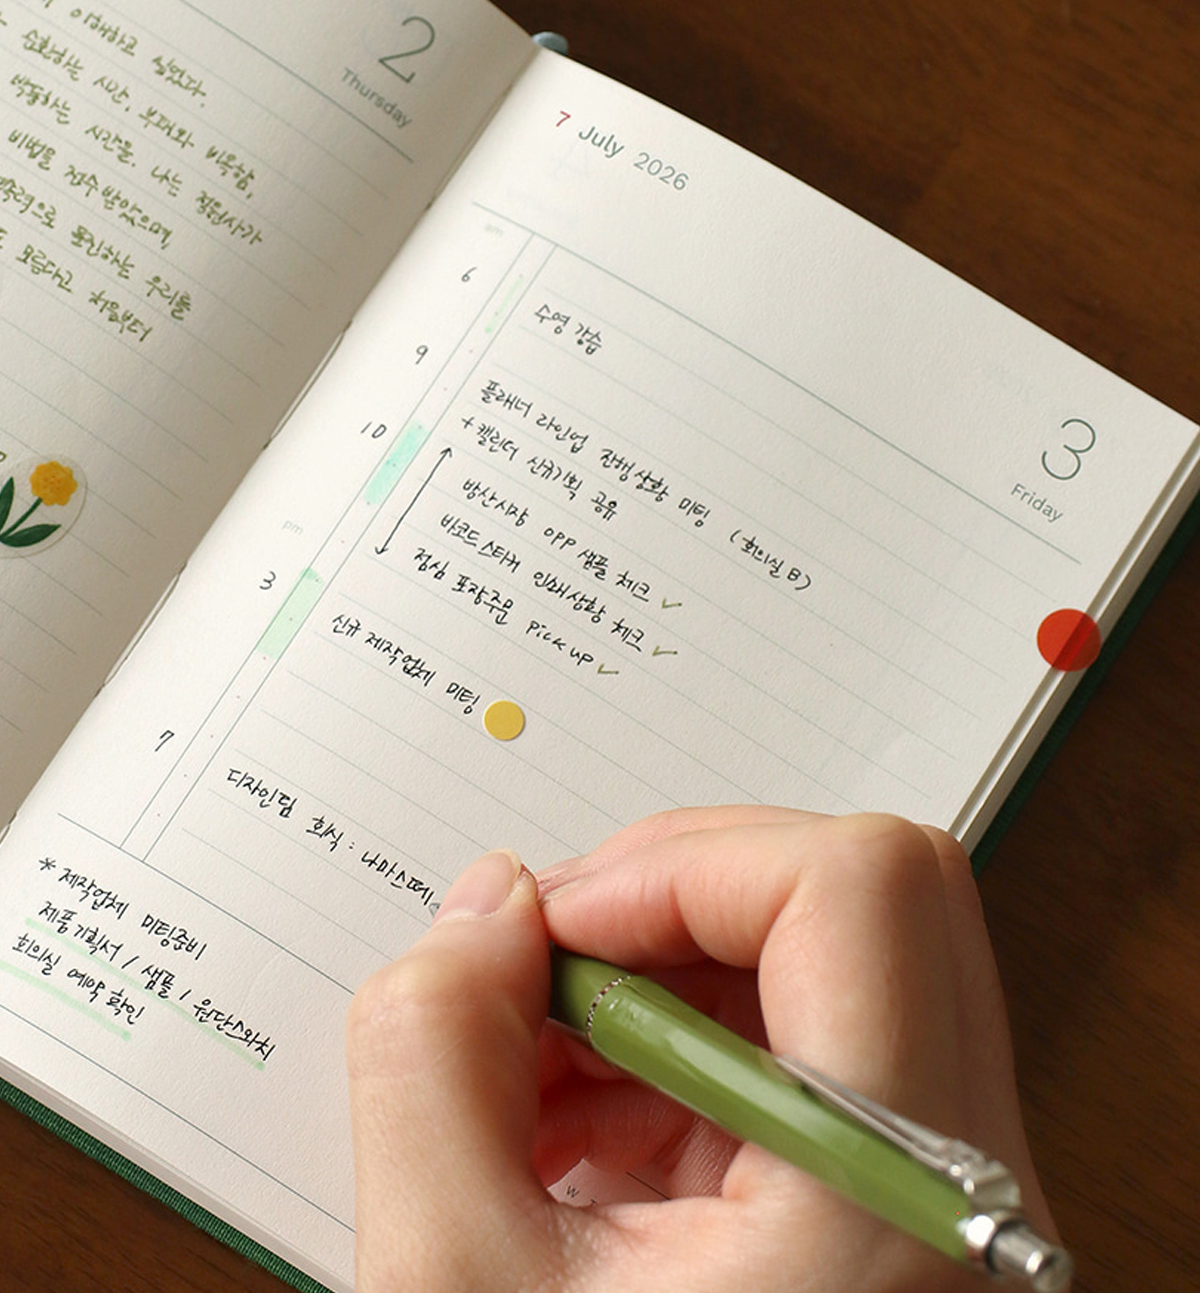 이해하고 싶었다.
순환하는 시간, 부패와 비옥함,
박동하는 시간을. 나는 정원사가
비법을 전수받았으며,
으로 돌진하는 우리를
모른다고 처음부터
2
Thursday
7 July 2026
3
Friday
am
6
수영 강습
9
플래너 라인업 진행상황 미팅 (회의실 B)
+ 캘린더 신규기획 공유
10
방산시장 OPP 샘플 체크 ✓
바코드스티커 인쇄상황 체크 ✓
점심 포장주문 Pick up ✓
pm
3
신규 제작업체 미팅
7
디자인팀 회식 : 나마스떼
* 제작업체 미팅준비
제품기획서 / 샘플 / 원단스와치
회의실 예약 확인
W